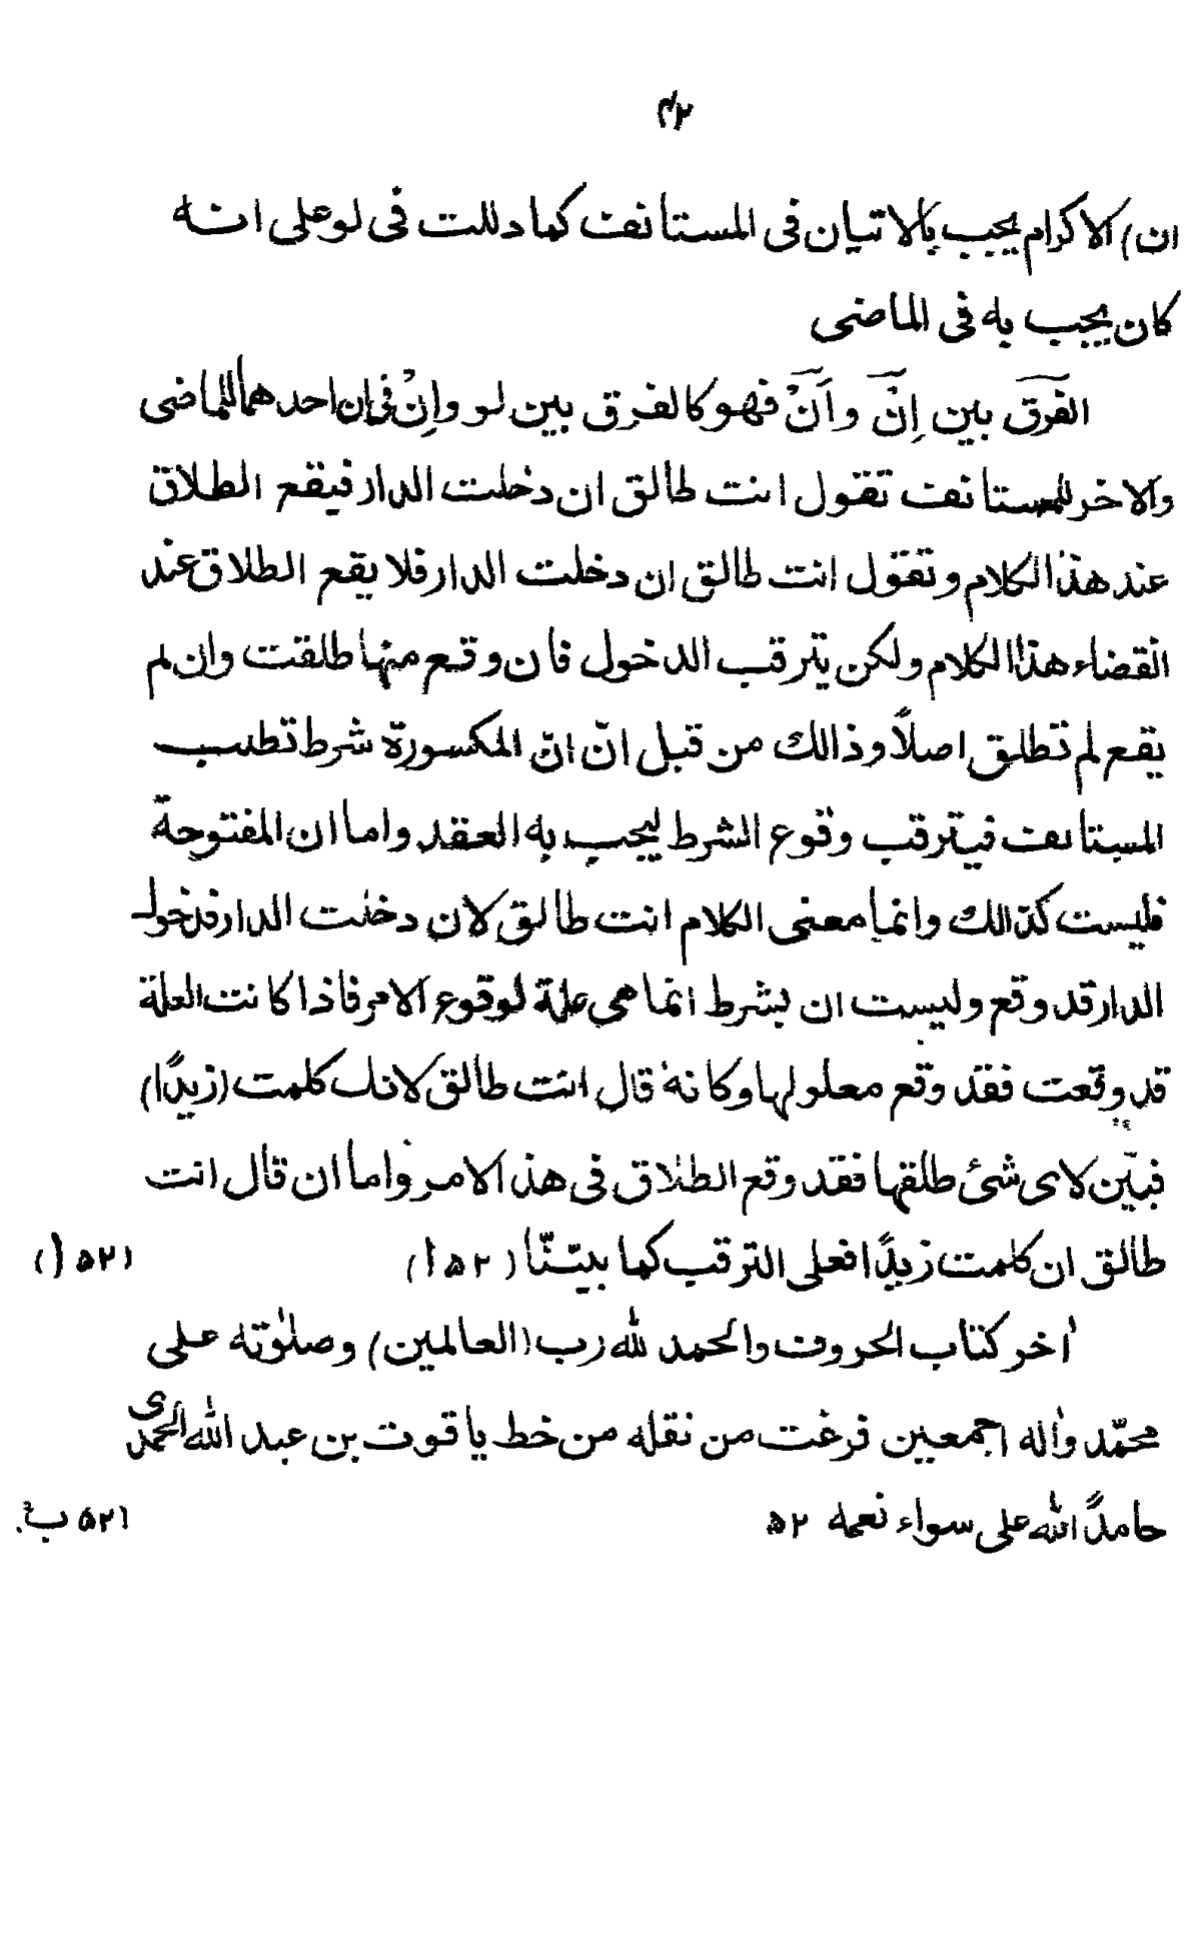 ۴۲
ان) الاكرام يجب بالاتيان فى المستأنف كما دللت فى لو على انه
كان يجب به فى الماضى
الفرق بين اِنَّ واَنَّ فهو كالفرق بين لو واِنْ فى ان احدهما للماضى
والاخر للمستأنف تقول انت طالق ان دخلت الدار فيقع الطلاق
عند هذا الكلام وتقول انت طالق ان دخلت الدار فلا يقع الطلاق عند
انقضاء هذا الكلام ولكن يترقب الدخول فان وقع منها طلقت وان لم
يقع لم تطلق اصلاً وذالك من قبل انّ انّ المكسورة شرط تطلب
المستأنف فيترقب وقوع الشرط ليجب به العقد واما ان المفتوحة
فليست كذالك وانما معنى الكلام انت طالق لان دخلت الدار فدخول
الدار قد وقع وليست ان بشرط انما هى علة لوقوع الامر فاذا كانت العلة
قد وقعت فقد وقع معلولها وكانه قال انت طالق لانك كلمت (زيدًا)
فبيّن لاى شئ طلقها فقد وقع الطلاق فى هذ الامر واما ان قال انت
طالق ان كلمت زيدًا فعلى الترقب كما بيّنّا (۵۲ ا) (۵۲ ا)
اٰخر كتاب الحروف والحمد لله رب (العالمين) وصلوٰته على
محمّد واٰله اجمعين فرغت من نقله من خط ياقوت بن عبد الله الحموى
حامدًا الله على سواء نعمه ۵۲ (۵۲ ب)